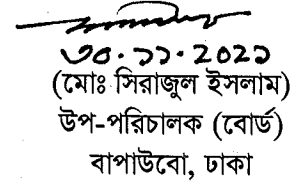 ৩০.১১.2021
(মোঃ সিরাজুল ইসলাম)
উপ-পরিচালক (বোর্ড)
বাপাউবো, ঢাকা